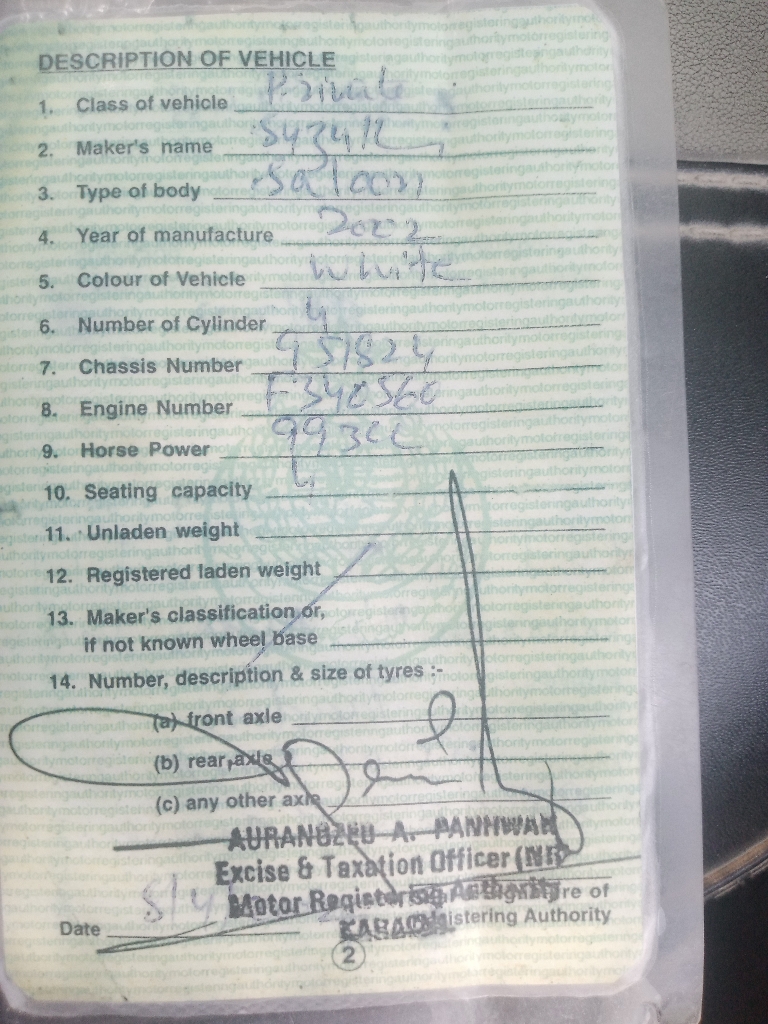 DESCRIPTION OF VEHICLE
1. Class of vehicle Private
2. Maker's name Suzuki
3. Type of body Saloon
4. Year of manufacture 2002
5. Colour of Vehicle White
6. Number of Cylinder 4
7. Chassis Number 951824
8. Engine Number F340560
9. Horse Power 993cc
10. Seating capacity 4
11. Unladen weight
12. Registered laden weight
13. Maker's classification or,
if not known wheel base
14. Number, description & size of tyres :-
(a) front axle
(b) rear axle
(c) any other axle
A. PANHWAR
Excise & Taxation Officer
Motor Registering Authority
Signature of
Date Registering Authority
KARACHI
2